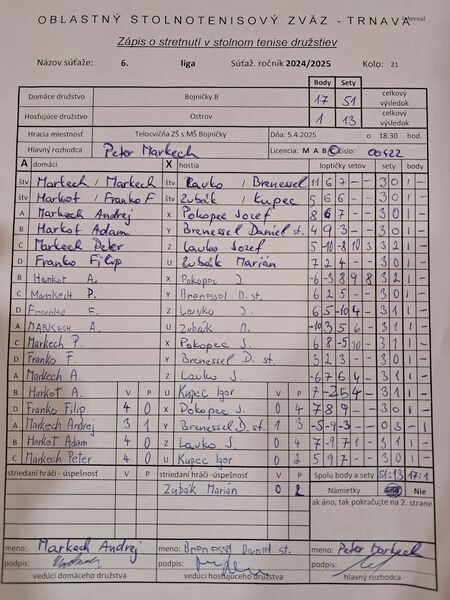 OBLASTNÝ STOLNOTENISOVÝ ZVÄZ - TRNAVA
Zápis o stretnutí v stolnom tenise družstiev
Názov súťaže: 6. liga Súťaž. ročník 2024/2025 Kolo: 21
Body Sety
Domáce družstvo Bojničky B 17 51 celkový výsledok
Hosťujúce družstvo Ostrov 1 13 celkový výsledok
Hracia miestnosť Telocvičňa ZŠ s MŠ Bojničky Dňa: 5.4.2025 o 18:30 hod.
Hlavný rozhodca Peter Markech Licencia: M A B C číslo: 00422
A domáci X hostia loptičky setov sety body
štv Markech / Markech štv Lavko / Brenessel 11 6 7 - - 3 0 1 -
štv Harkot / Franko F štv Zubák / Kupec 5 6 6 - - 3 0 1 -
A Markech Andrej X Pokopec Jozef 8 6 7 - - 3 0 1 -
B Harkot Adam Y Brenessel Daniel st. 4 9 3 - - 3 0 1 -
C Markech Peter Z Lavko Jozef 5 -10 -8 10 3 3 2 1 -
D Franko Filip U Zubák Marián 7 2 4 - - 3 0 1 -
B Harkot A. X Pokopec J. -6 -3 8 9 8 3 2 1 -
C Markech P. Y Brenessel D. st. 6 2 5 - - 3 0 1 -
D Franko F. Z Lavko J. 6 5 -10 4 - 3 1 1 -
A MARKECH A. U Zubák M. -10 3 5 6 - 3 1 1 -
C Markech P. X Pokopec J. 6 8 -5 10 - 3 1 1 -
D Franko F. Y Brenessel D. st. 3 2 3 - - 3 0 1 -
A Markech A. Z Lavko J. -6 7 6 4 - 3 1 1 -
B Harkot A. V P U Kupec Igor V P 7 -2 5 4 - 3 1 1 -
D Franko Filip 4 0 X Pokopec J. 0 4 7 8 9 - - 3 0 1 -
A Markech Andrej 3 1 Y Brenessel D. st. 1 3 -5 -9 -3 - - 0 3 - 1
B Harkot Adam 4 0 Z Lavko J. 0 4 7 -9 7 1 - 3 1 1 -
C Markech Peter 4 0 U Kupec Igor 0 2 5 9 7 - - 3 0 1 -
striedaní hráči - úspešnosť V P striedaní hráči - úspešnosť V P Spolu body a sety 51:13 17:1
Zubák Marián 0 2 Námietky áno Nie
ak áno, tak pokračujte na 2. strane
meno: Markech Andrej meno: Brenessel Daniel st. meno: Peter Markech
podpis: podpis: podpis:
vedúci domáceho družstva vedúci hosťujúceho družstva hlavný rozhodca